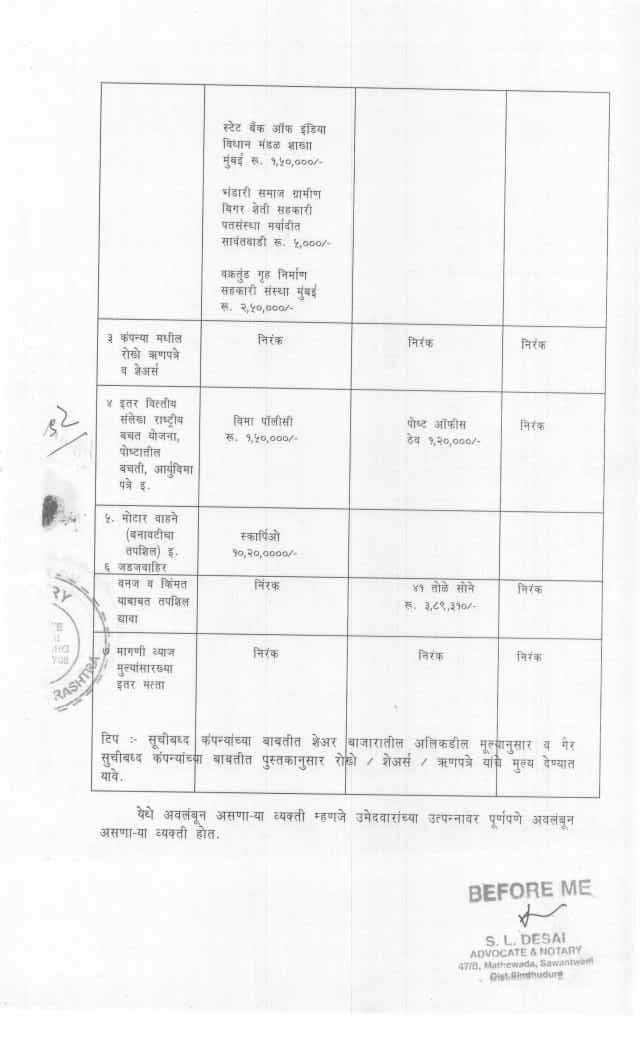 स्टेट बँक ऑफ इंडिया
विधान मंडळ शाखा
मुंबई रू. १,५०,०००/-
भंडारी समाज ग्रामीण
बिगर शेती सहकारी
पतसंस्था मर्यादीत
सावंतवाडी रू. ५,०००/-
वक्रतुंड गृह निर्माण
सहकारी संस्था मुंबई
रू. २,५०,०००/-
३ कंपन्या मधील
रोखे ऋणपत्रे
व शेअर्स
निरंक
निरंक
निरंक
४ इतर वित्तीय
संलेखा राष्ट्रीय
बचत योजना,
पोष्टातील
बचती, आर्युविमा
पत्रे इ.
विमा पॉलीसी
रू. १,५०,०००/-
पोष्ट ऑफीस
ठेव १,२०,०००/-
निरंक
५. मोटार वाहने
(बनावटीचा
तपशिल) इ.
स्कार्पिओ
१०,२०,००००/-
६ जडजवाहिर
वनज व किंमत
याबाबत तपशिल
द्यावा
निंरक
४१ तोळे सोने
रू. ३,८९,३१०/-
निरंक
७ मागणी व्याज
मुल्यांसारख्या
इतर मत्ता
निरंक
निरंक
निरंक
टिप :- सूचीबध्द कंपन्यांच्या बाबतीत शेअर बाजारातील अलिकडील मूल्यानुसार व गैर
सुचीबध्द कंपन्यांच्या बाबतीत पुस्तकानुसार रोखे / शेअर्स / ऋणपत्रे यांचे मुल्य देण्यात
यावे.
येथे अवलंबून असणा-या व्यक्ती म्हणजे उमेदवारांच्या उत्पन्नावर पूर्णपणे अवलंबून
असणा-या व्यक्ती होत.
RASHTRA
BEFORE ME
S. L. DESAI
ADVOCATE & NOTARY
47/B, Mathewada, Sawantwadi
Dist.Sindhudurg